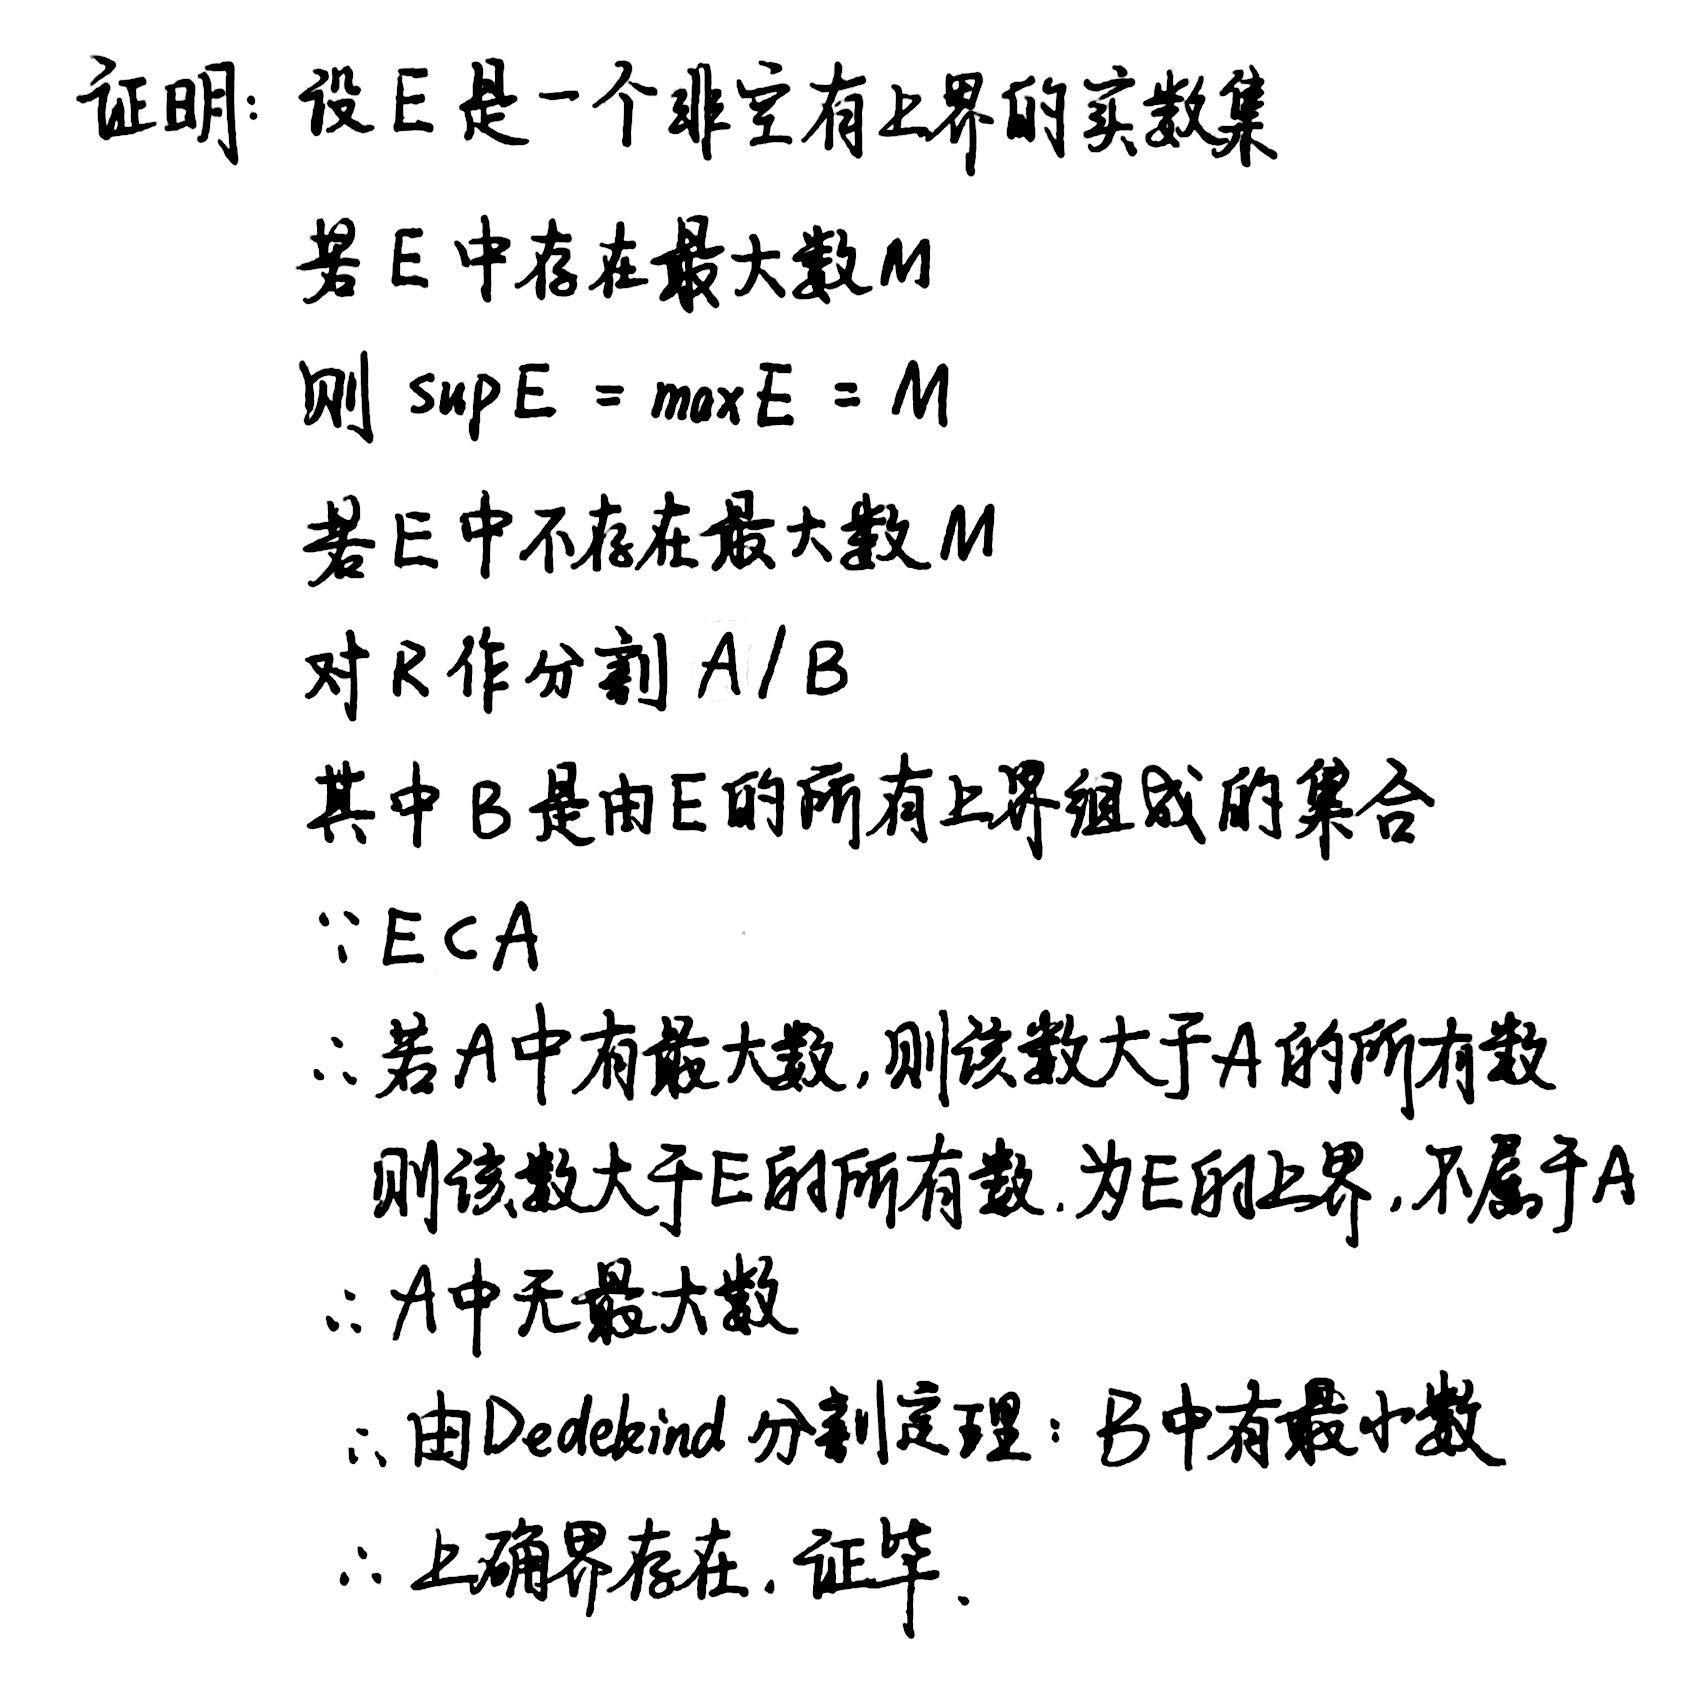 证明: 设E是一个非空有上界的实数集
若E中存在最大数M
则 supE = maxE = M
若E中不存在最大数M
对R作分割 A/B
其中B是由E的所有上界组成的集合
∵E⊂A
∴若A中有最大数,则该数大于A的所有数
则该数大于E的所有数.为E的上界,不属于A
∴A中无最大数
∴由Dedekind分割定理:B中有最小数
∴上确界存在.证毕.